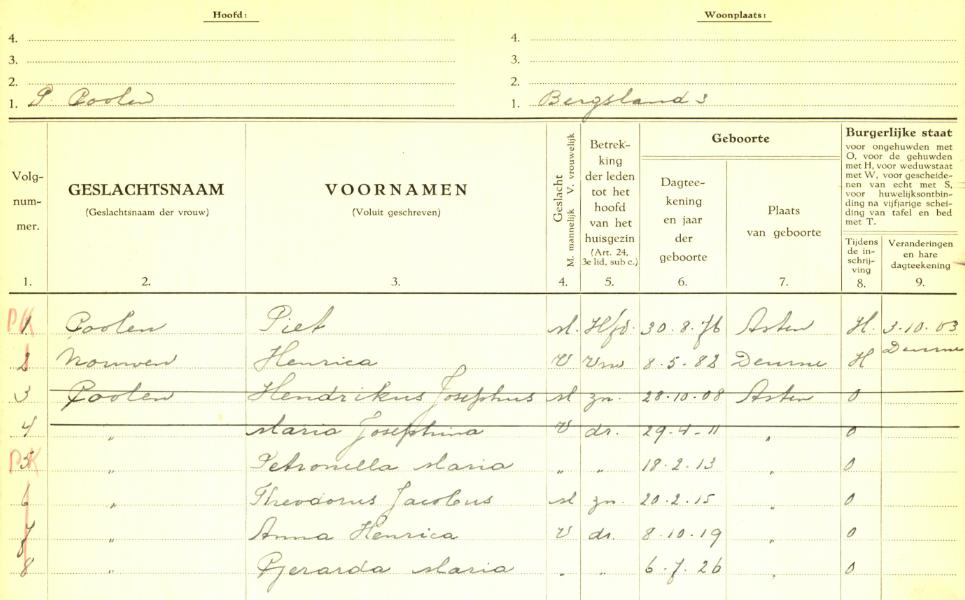 Hoofd:
Woonplaats:
4.
4.
3.
3.
2.
2.
1. P. Coolen
1. Bergsland 3
Volg-
num-
mer.
GESLACHTSNAAM
(Geslachtsnaam der vrouw)
VOORNAMEN
(Voluit geschreven)
Geslacht
M. mannelijk V. vrouwelijk
Betrek-
king
der leden
tot het
hoofd
van het
huisgezin
(Art. 24,
3e lid, sub c.)
Geboorte
Dagtee-
kening
en jaar
der
geboorte
Plaats
van geboorte
Burgerlijke staat
voor ongehuwden met
O, voor de gehuwden
met H, voor weduwstaat
met W, voor gescheide-
nen van echt met S,
voor huwelijksontbin-
ding na vijfjarige schei-
ding van tafel en bed
met T.
Tijdens
de in-
schrij-
ving
Veranderingen
en hare
dagteekening
1. 2. 3. 4. 5. 6. 7. 8. 9.
PK 1 Coolen Piet M. Hfd. 30.8.76 Asten H. 3.10.03
Deurne
2 Nouwen Henrica V Vrw 8.5.82 Deurne H
3 Coolen Hendrikus Josephus M zn. 28.10.08 Asten O
4 " Maria Josephina V dr. 29-4-11 " O
PK 5 " Petronella Maria " " 18.2.13 " O
6 " Theodorus Jacobus M zn. 20.2.15 " O
7 " Anna Henrica V dr. 8.10.19 " O
8 " Gerarda Maria " " 6.7.26 " O